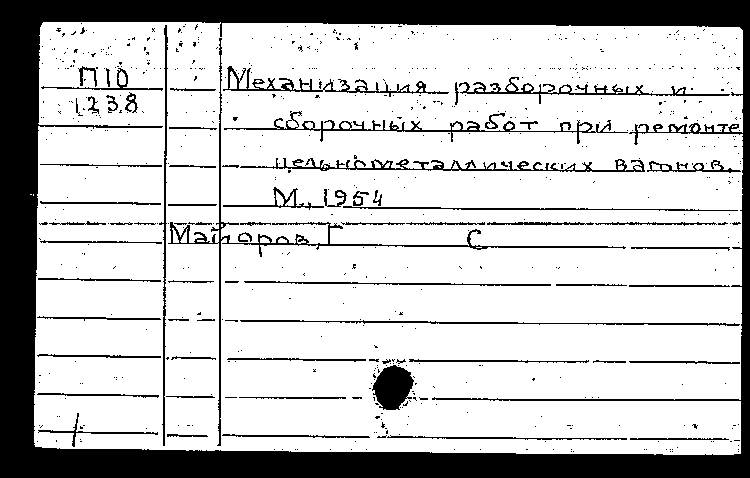 П10
1238
Механизация разборочных и
сборочных работ при ремонте
цельнометаллических вагонов.
М., 1954
Майоров, Г С